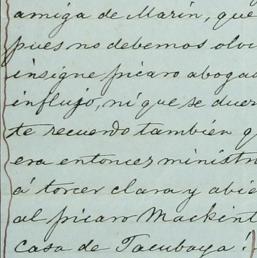 amiga de Marin, que
pues no debemos olvi
insigne pícaro abogad
influjo, ni que se duer
te recuerdo también q
era entonces ministr
á torcer clara y abie
al pícaro Mackint
casa de Tacubaya!